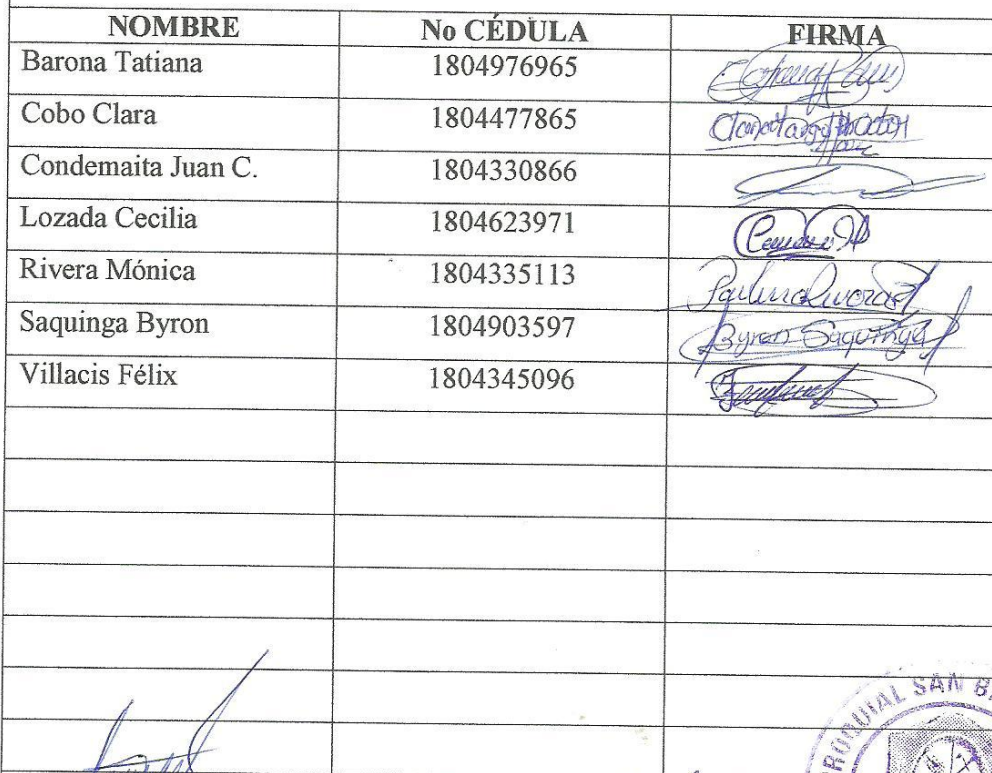 NOMBRE No CÉDULA FIRMA
Barona Tatiana 1804976965
Cobo Clara 1804477865
Condemaita Juan C. 1804330866
Lozada Cecilia 1804623971
Rivera Mónica 1804335113
Saquinga Byron 1804903597 Byron Saquinga
Villacis Félix 1804345096
ROQUIAL SAN B